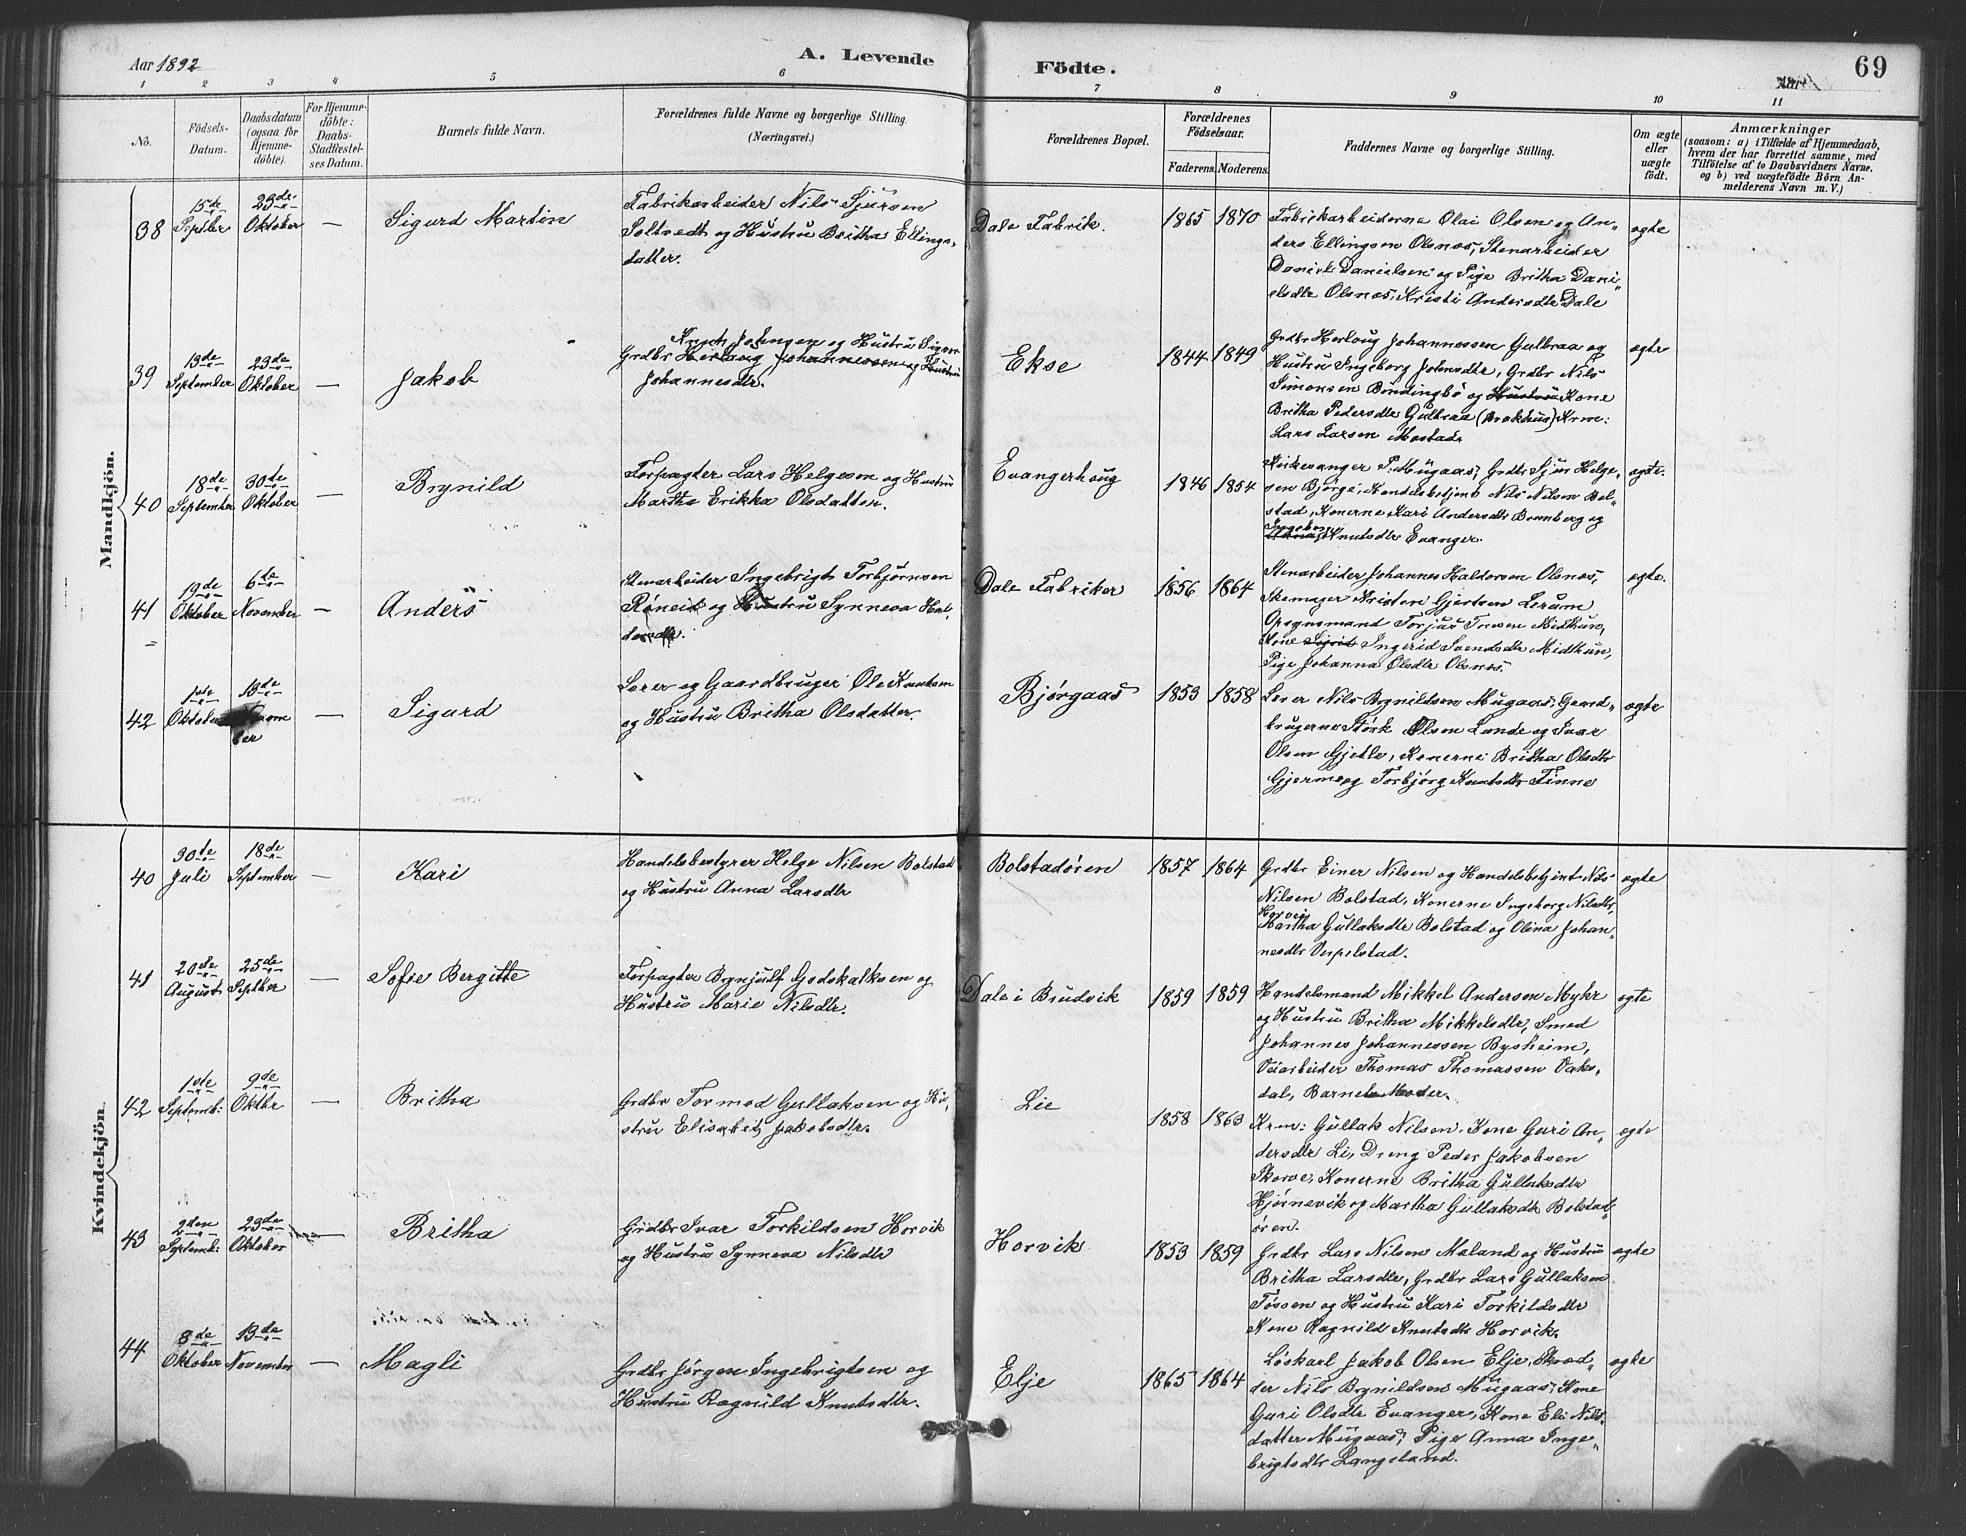 Aar 1892
A. Levende
Födte.
69
Aar
1 2 3 4 5 6 7 8 9 10 11
No.
Födsels-
Datum.
Daabsdatum
(ogsaa for
Hjemme-
döbte).
For Hjemme-
döbte:
Daabs-
Stadfestel-
ses Datum.
Barnets fulde Navn.
Forældrenes fulde Navne og borgerlige Stilling.
(Næringsvei.)
Forældrenes Bopæl.
Forældrenes
Födselsaar.
Faderens. Moderens.
Faddernes Navne og borgerlige Stilling.
Om ægte
eller
uægte
födt.
Anmærkninger
(saasom: a) i Tilfælde af Hjemmedaab,
hvem der har forrettet samme, med
Tilföielse af to Daabsvidners Navne,
og b) ved uægtefödte Börn An-
melderens Navn m. V.)
Mandkjön.
38
15de
Septber
23de
Oktober
—
Sigurd Martin
Fabrikarbeider Nils Sjursen
Soltvedt og Hustru Britha Ellings-
datter.
Dale Fabrik.
1865 1870
Fabrikarbeiderne Olai Olsen og An-
ders Ellingsen Olsnes, Stenarbeider
Daniel Danielsen og Pige Britha Dani-
elsdtr Olsnes, Kristi Andersdtr Dale
ægte
39
13de
September
23de
Oktober
—
Jakob
Knut Johnsen og Hustru Signe
Grdbr Herlaug Johannessen og Hustru
Johannesdtr.
Ekse
1844 1849
Grdbr Herloug Johannessen Gulbraa og
Hustru Ingeborg Johnsdtr, Grdbr Nils
Simonsen Bindingbø og Hustru Kone
Britha Pedersdtr Gulbraa (Brakhus) Krm:
Lars Larsen Mostad.
ægte
40
18de
September
30de
Oktober
—
Brynild
Forpagter Lars Helgeson og Hustru
Martha Erikka Olsdatter.
Evangerhoug
1846 1854
Kirkesanger P. Mugaas, Grdbr Sjur Helge-
sen Bjørge, Handelsbetjent Nils Nilsen Bol-
stad, Konerne Kari Andersdtr Brunberg og
Ingeborg
Knutsdtr Evanger.
ægte.
41
19de
Oktober
6de
November
—
Anders
Stenarbeider Ingebrigt Torbjørnsen
Røneid og Hustru Synneva Hal-
dorsdtr.
Dale Fabriker
1856 1864
Stenarbeider Johannes Haldorsen Olsnes,
Skomager Kristen Gjertsen Lerum
Opsynsmand Torjus Midthun,
Kone Sigrid Ingerid Svendsdtr Midthun,
Pige Johanna Olsdtr Olsnes.
ægte.
42
1ste
Oktober
13de
ber
—
Sigurd
Lærer og Gaardbruger Ole Knutsen
og Hustru Britha Olsdatter.
Bjørgaas
1853 1858
Lærer Nils Brynildsen Mugaas, Gaard-
brugerne Størk Olsen Lunde og Ivar
Olsen Gjelle, Konerne Britha Olsdtr
Gjerme og Torbjørg Knutsdtr Finne
ægte
Kvindekjön.
40
30te
Juli
18de
September
—
Kari
Handelsbestyrer Helge Nilsen Bolstad
og Hustru Anna Larsdtr
Bolstadøren
1857 1864
Grdbr Einer Nilsen og Handelsbetjent Nils
Nilsen Bolstad, Konerne Ingeborg Nilsdtr
Horvei
Martha Gullaksdtr Bolstad og Olina Johan-
nesdtr Vespelstad.
ægte
41
20de
August
25de
Septber
—
Sofie Bergitte
Forpagter Brynjulf Godskalksen og
Hustru Marie Nilsdtr.
Dale i Brudvik
1859 1859
Handelsmand Mikkel Andersen Myhr
og Hustru Britha Mikkelsdtr, Smed
Johannes Johannessen Bysheim,
Veiarbeider Thomas Thomassen Vaks-
dal, Barnets Moder.
ægte
42
1ste
Septemb:
9de
Oktbr
—
Britha
Grdbr Tormod Gullaksen og Hu-
stru Elisabet Jakobsdtr.
Lie
1858 1863
Krm: Gullak Nilsen, Kone Guri An-
dersdtr Li, Dreng Peder Jakobsen
Skorve, Konerne Britha Gullaksdtr
Hjørnevik og Martha Gullaksdtr Bolstad-
øren.
ægte
43
2den
Septemb:
23de
Oktober
—
Britha
Grdbr Ivar Torkildsen Horvik
og Hustru Synneva Nilsdtr
Horvik
1853 1859
Grdbr Lars Nilsen Moland og Hustru
Britha Larsdtr, Grdbr Lars Gullaksen
Tøssen og Hustru Kari Torkildsdtr
Kone Ragnild Knutsdtr Horvik.
ægte
44
8de
Oktober
13de
November
—
Magli
Grdbr Jørgen Ingebrigtsen og
Hustru Ragnild Knutsdtr.
Elje
1865 1864
Løskarl Jakob Olsen Elje, Skræd-
der Nils Brynildsen Mugaas, Kone
Guri Olsdtr Evanger, Kone Eli Nils-
datter Mugaas, Pige Anna Inge-
brigtsdtr Langeland.
ægte